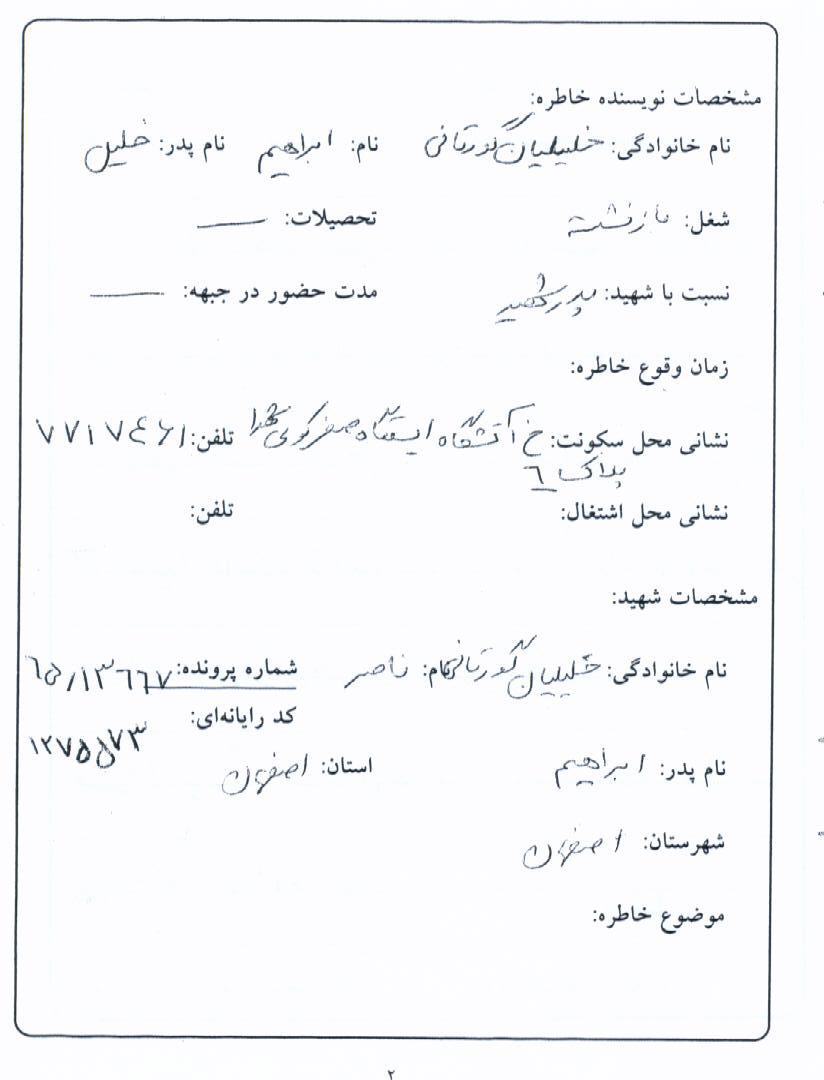 مشخصات نویسنده خاطره:
نام خانوادگی: خلیلیان گورتانی نام: ابراهیم نام پدر: خلیل
شغل: بازنشسته تحصیلات: —
نسبت با شهید: پدر شهید مدت حضور در جبهه: —
زمان وقوع خاطره:
نشانی محل سکونت: خ آتشگاه ایستگاه صفر کوی شهدا تلفن: ۷۷۱۷۴۶۱
پلاک ۶
نشانی محل اشتغال: تلفن:
مشخصات شهید:
نام خانوادگی: خلیلیان گورتانی نام: ناصر شماره پرونده: ۶۵/۱۳۶۶۷
کد رایانه‌ای: ۱۲۷۵۵۷۳
نام پدر: ابراهیم استان: اصفهان
شهرستان: اصفهان
موضوع خاطره:
۲